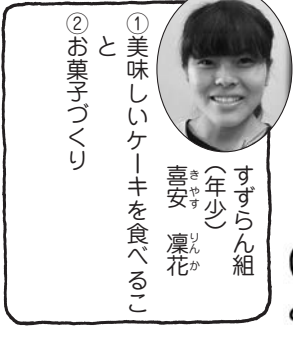 すずらん組
（年少）
喜安　凜花
きやす　りんか
①美味しいケーキを食べるこ
と
②お菓子づくり